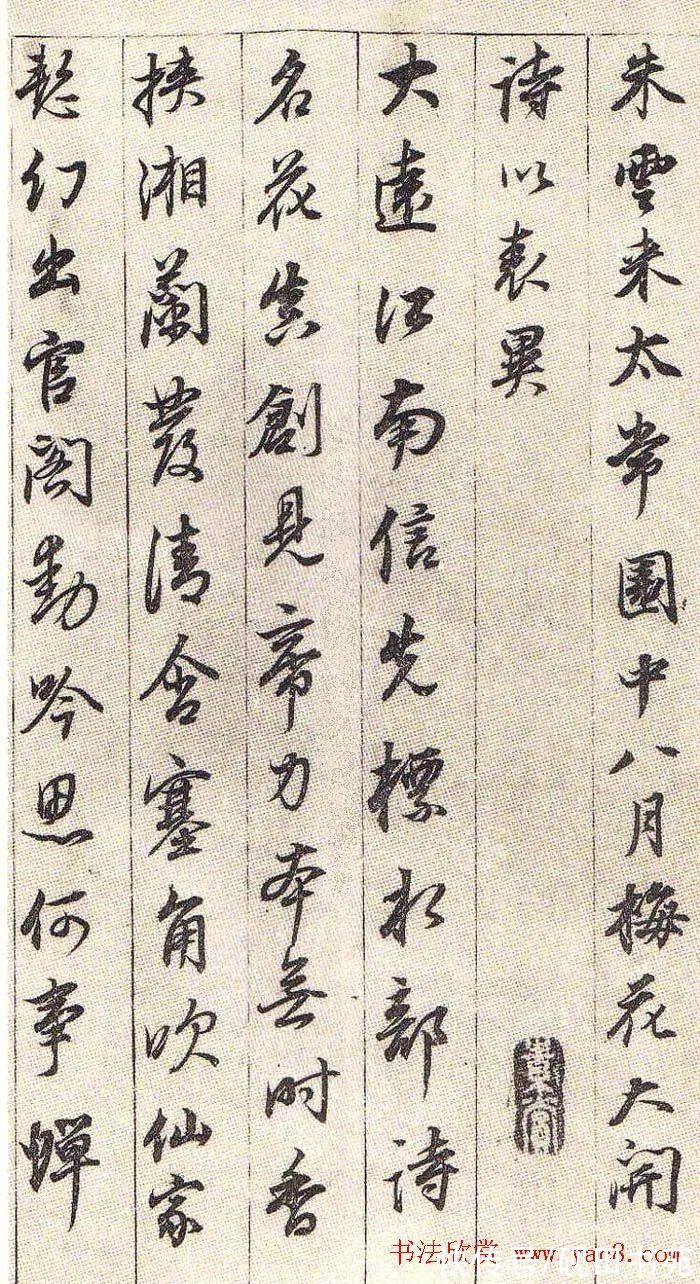 朱雲来太常園中八月梅花大開
詩以表異
大遠江南信先標水部詩
名花真創見帝力本無時香
挾湘蘭發清含塞角吹仙家
幻出官閣動吟思何事蟬
书法欣赏 www.yac8.com